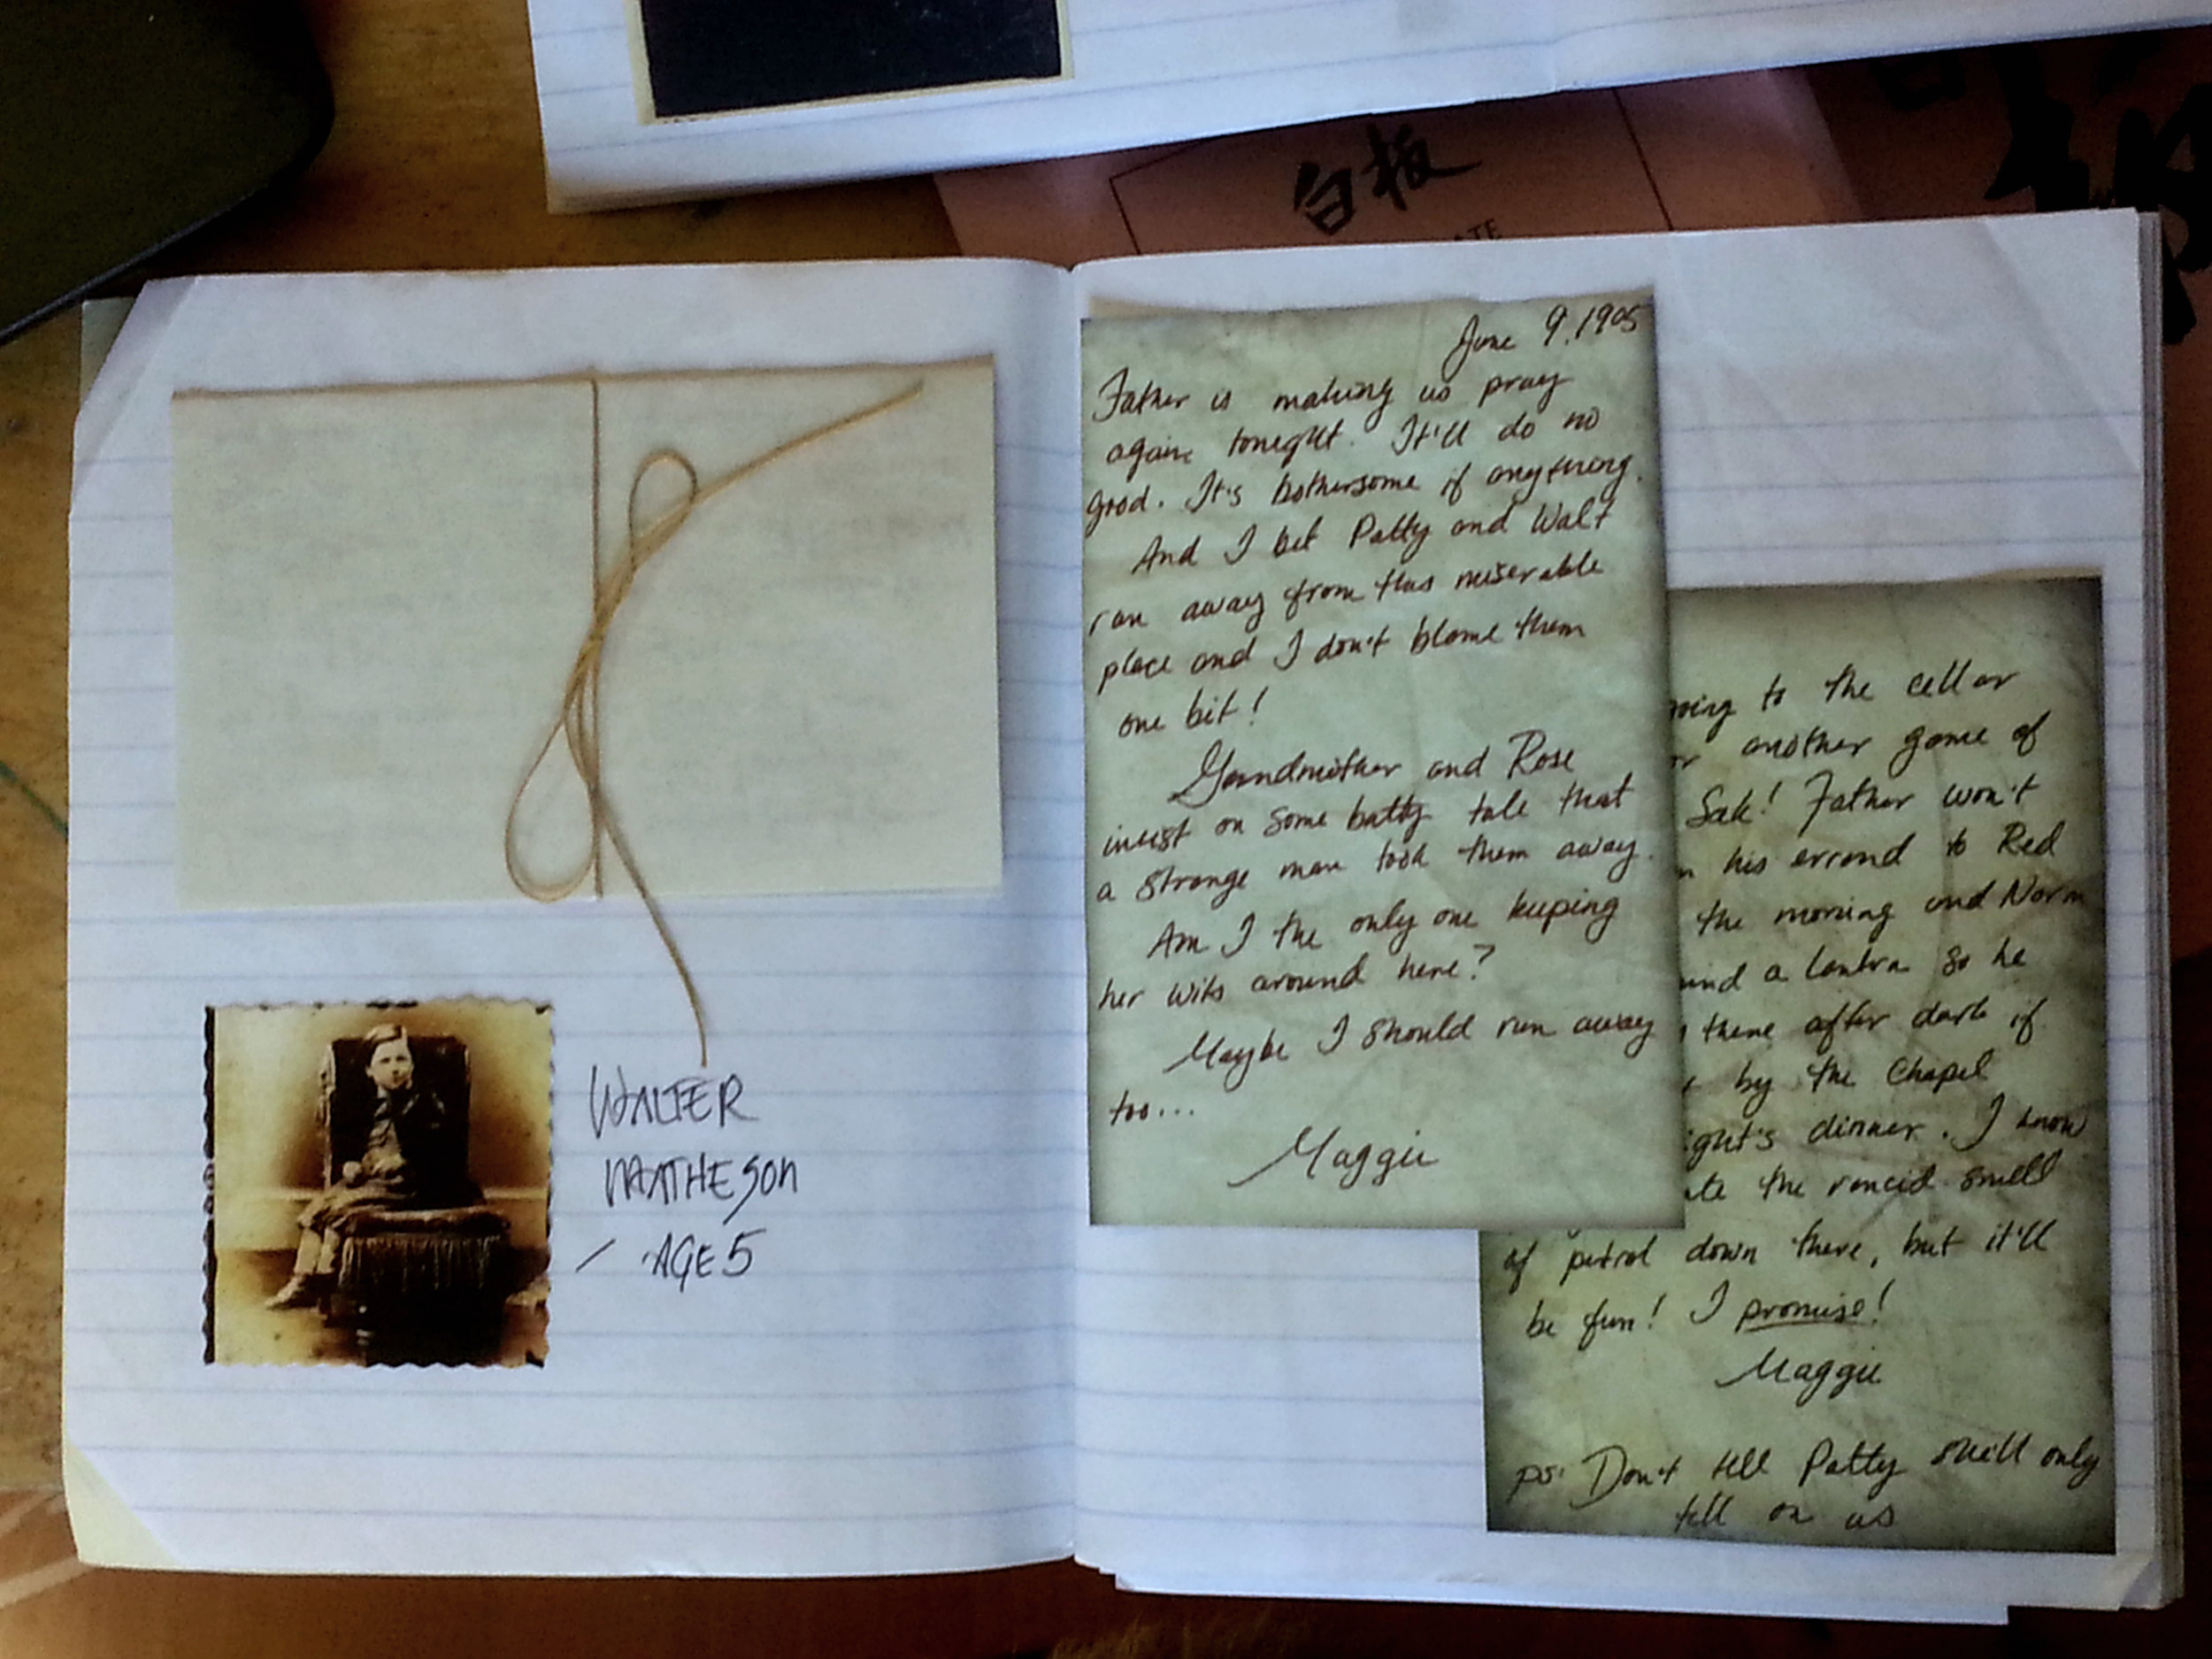 白板
WALTER
MATHESON
AGE 5
June 9, 1905
Father is making us pray
again tonight. It'll do no
good. It's bothersome if anything.
And I bet Patty and Walt
ran away from this miserable
place and I don't blame them
one bit!
Grandmother and Rose
insist on some batty tale that
a strange man took them away.
Am I the only one keeping
her wits around here?
Maybe I should run away
too...
Maggie
to the cellar
another game of
Sak! Father won't
his errand to Red
the morning and Norm
a lantern so he
there after dark if
by the Chapel
dinner. I know
the rancid smell
of petrol down there, but it'll
be fun! I promise!
Maggie
ps: Don't tell Patty she'll only
tell on us